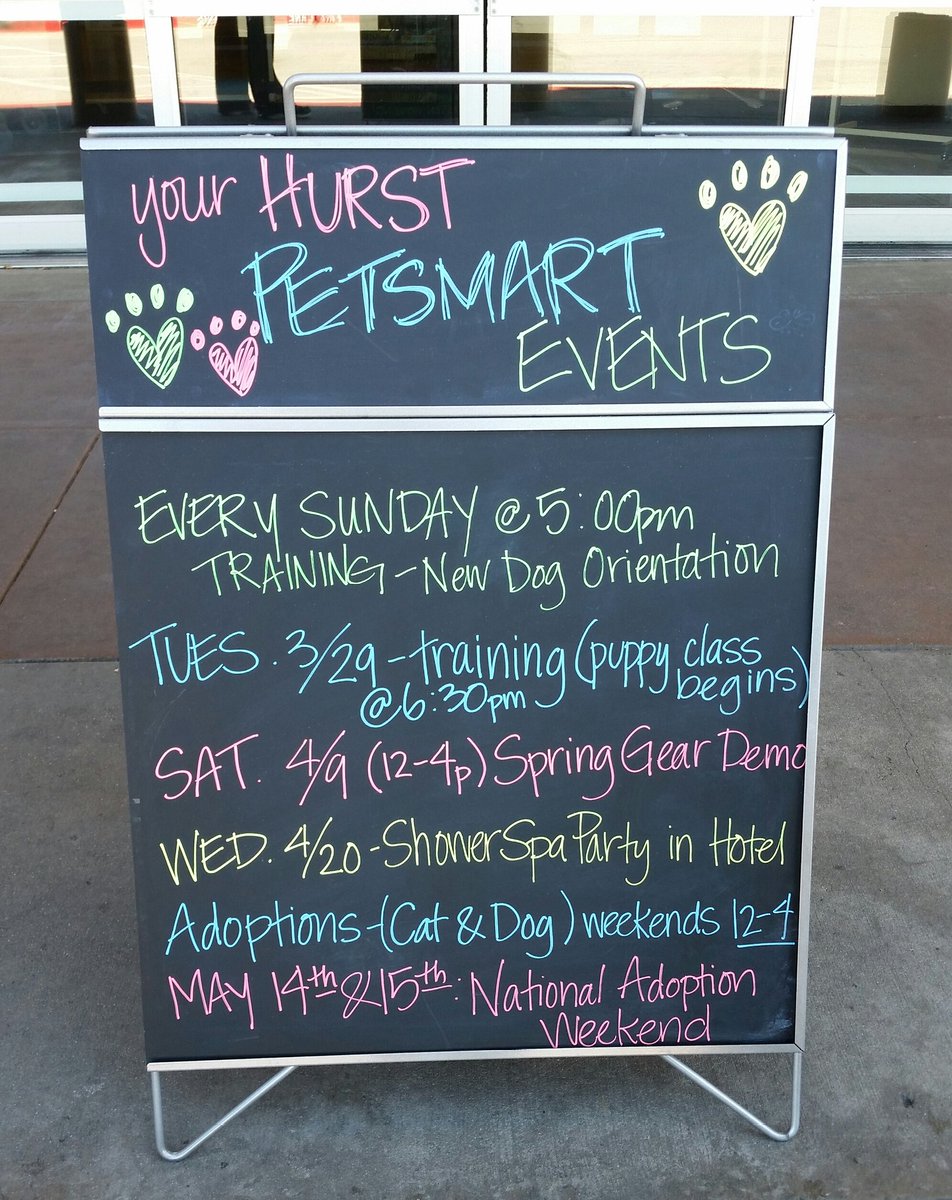 your HURST
PETSMART
EVENTS
EVERY SUNDAY @ 5:00pm
TRAINING - New Dog Orientation
TUES. 3/29 - training (puppy class
@6:30pm begins)
SAT. 4/9 (12-4p) Spring Gear Demo
WED. 4/20 - Shower Spa Party in Hotel
Adoptions - (Cat & Dog) weekends 12-4
MAY 14th & 15th: National Adoption
Weekend